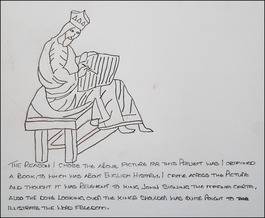 The Reason I chose the above picture for this project was I obtained
a book, to which was about English History, I came across the picture
and thought it was relevant to King John signing the Magna Carta,
also the dove looking over the kings shoulder was quite poignt to
illustrate the word freedom.